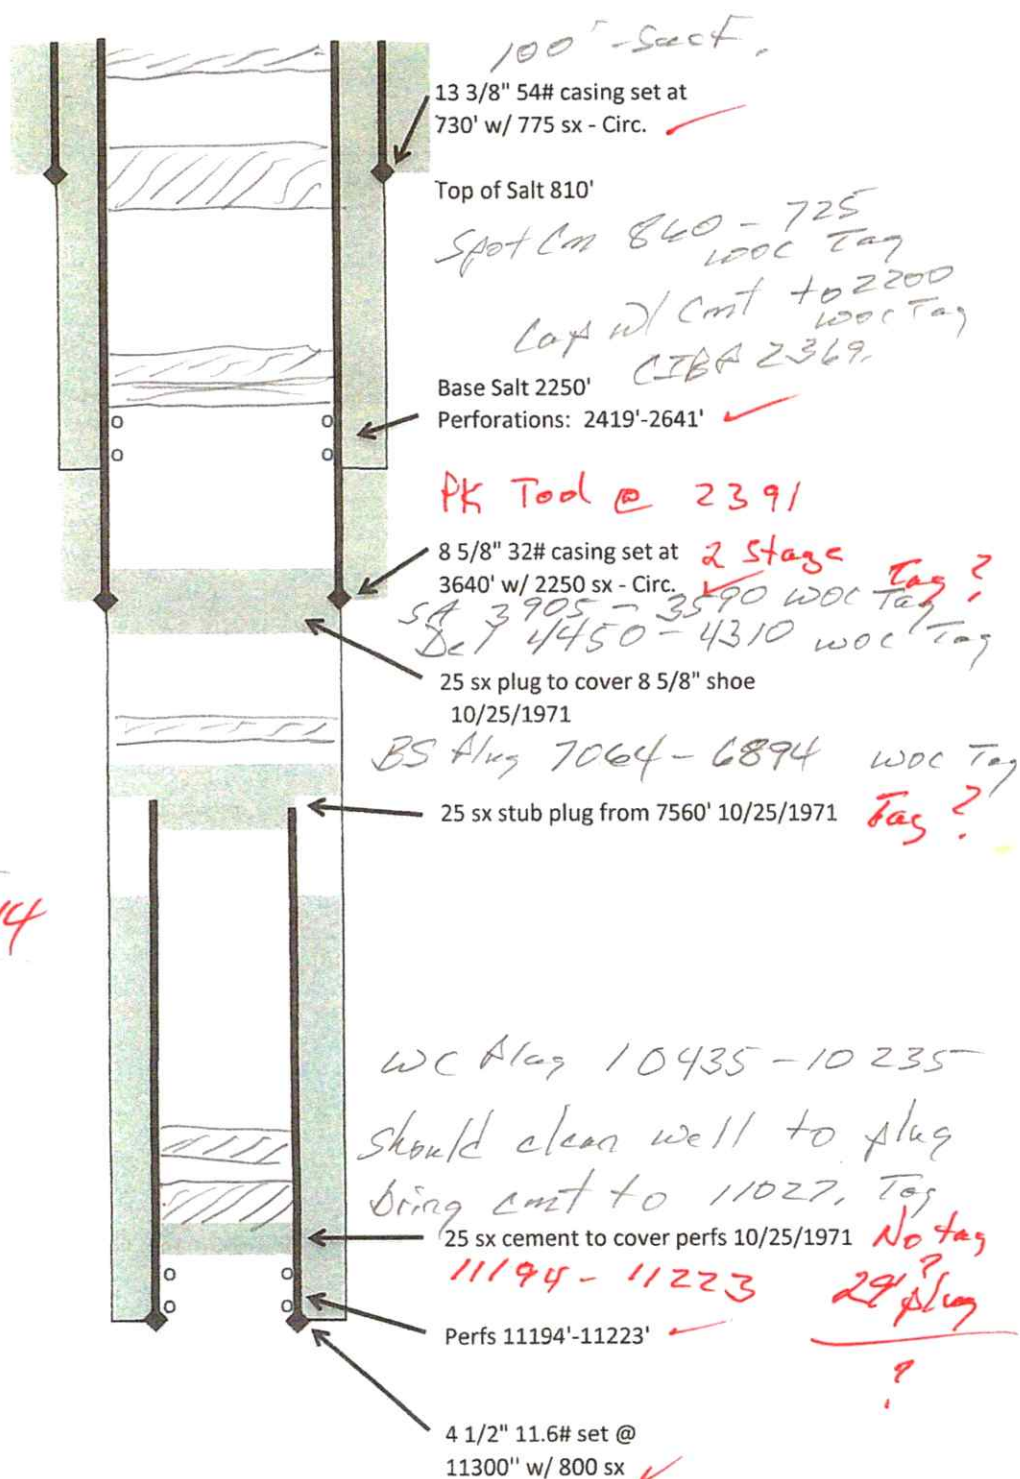 100' - Surf.
13 3/8" 54# casing set at
730' w/ 775 sx - Circ.
Top of Salt 810'
Spot Cm 860 - 725
WOC Tag
Cap w/ Cmt to 2200
WOC Tag
CIBP 2369.
Base Salt 2250'
Perforations: 2419'-2641'
PK Tool @ 2391
8 5/8" 32# casing set at 2 Stage
3640' w/ 2250 sx - Circ. Tag ?
SA 3905 - 3590 WOC Tag
Del 4450 - 4310 WOC Tag
25 sx plug to cover 8 5/8" shoe
10/25/1971
BS Plug 7064 - 6894 WOC Tag
25 sx stub plug from 7560' 10/25/1971 Tag ?
14
WC Plug 10435 - 10235
Should clean well to plug
bring cmt to 11027. Tag
25 sx cement to cover perfs 10/25/1971 No tag
?
11194 - 11223 29' plug
Perfs 11194'-11223'
?
4 1/2" 11.6# set @
11300'' w/ 800 sx